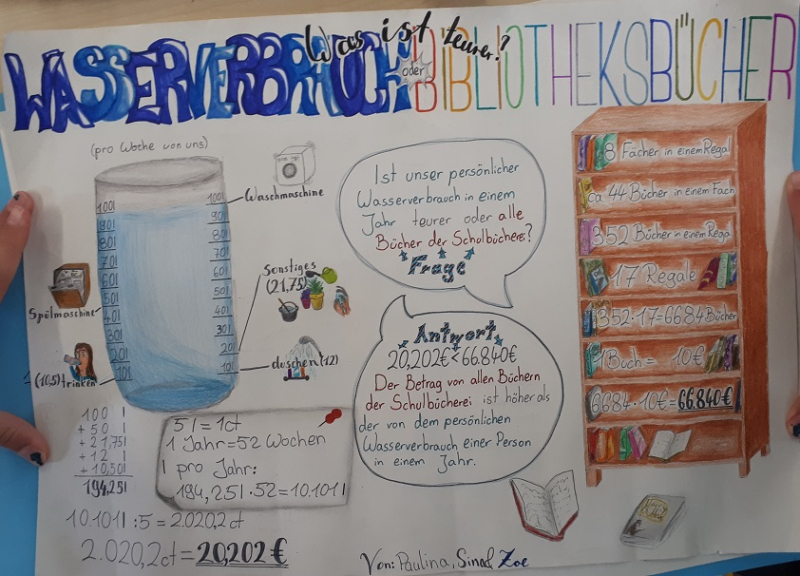 Was ist teurer?
WASSERVERBRAUCH oder BIBLIOTHEKSBÜCHER
(pro Woche von uns)
100l
90l
80l
70l
60l
50l
40l
30l
20l
10l
100l
90l
80l
70l
60l
50l
40l
30l
20l
10l
Waschmaschine
Spülmaschine
Sonstiges
(21,75)
(10,5) trinken
duschen (12)
100 l
+ 50 l
+ 21,75l
+ 12 l
+ 10,50l
194,25l
5l = 1ct
1 Jahr = 52 Wochen
l pro Jahr:
194,25l · 52 = 10.101l
10.101l : 5 = 2.020,2ct
2.020,2ct = 20,202 €
Ist unser persönlicher
Wasserverbrauch in einem
Jahr teurer oder alle
Bücher der Schulbücherei?
Frage
Antwort
20,202€ < 66.840€
Der Betrag von allen Büchern
der Schulbücherei ist höher als
der von dem persönlichen
Wasserverbrauch einer Person
in einem Jahr.
8 Fächer in einem Regal
ca 44 Bücher in einem Fach
352 Bücher in einem Regal
17 Regale
352·17=6684 Bücher
1 Buch = 10€
6684·10€=66.840€
Von: Paulina, Sinah, Zoe